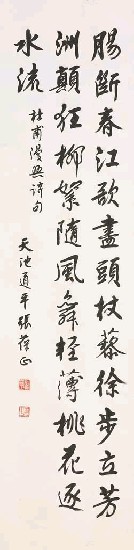 腸斷春江欲盡頭杖藜徐步立芳
洲顛狂柳絮隨風舞輕薄桃花逐
水流
杜甫漫興詩句
天池道平張